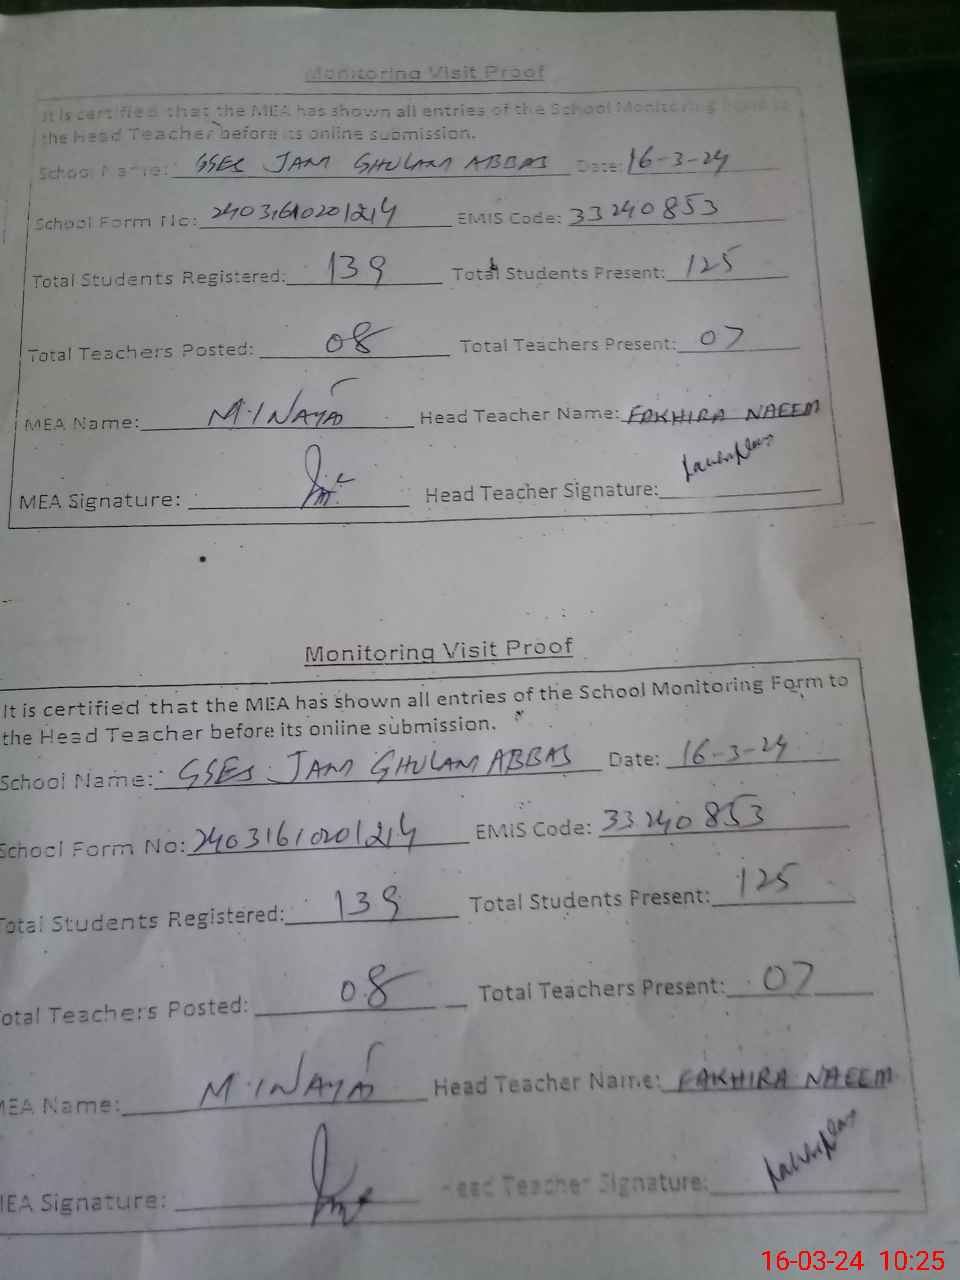 Monitoring Visit Proof
It is certified that the MEA has shown all entries of the School Monitoring Form to
the Head Teacher before its online submission.
School Name: GGES JAM GHULAM ABBAS Date: 16-3-24
School Form No: 24031610201214 EMIS Code: 33240853
Total Students Registered: 139 Total Students Present: 125
Total Teachers Posted: 08 Total Teachers Present: 07
MEA Name: M.INAYAT Head Teacher Name: FAKHIRA NAEEM
MEA Signature: Head Teacher Signature:
Monitoring Visit Proof
It is certified that the MEA has shown all entries of the School Monitoring Form to
the Head Teacher before its online submission.
School Name: GGES JAM GHULAM ABBAS Date: 16-3-24
School Form No: 24031610201214 EMIS Code: 33240853
Total Students Registered: 139 Total Students Present: 125
Total Teachers Posted: 08 Total Teachers Present: 07
MEA Name: M.INAYAT Head Teacher Name: FAKHIRA NAEEM
MEA Signature: Head Teacher Signature:
16-03-24 10:25